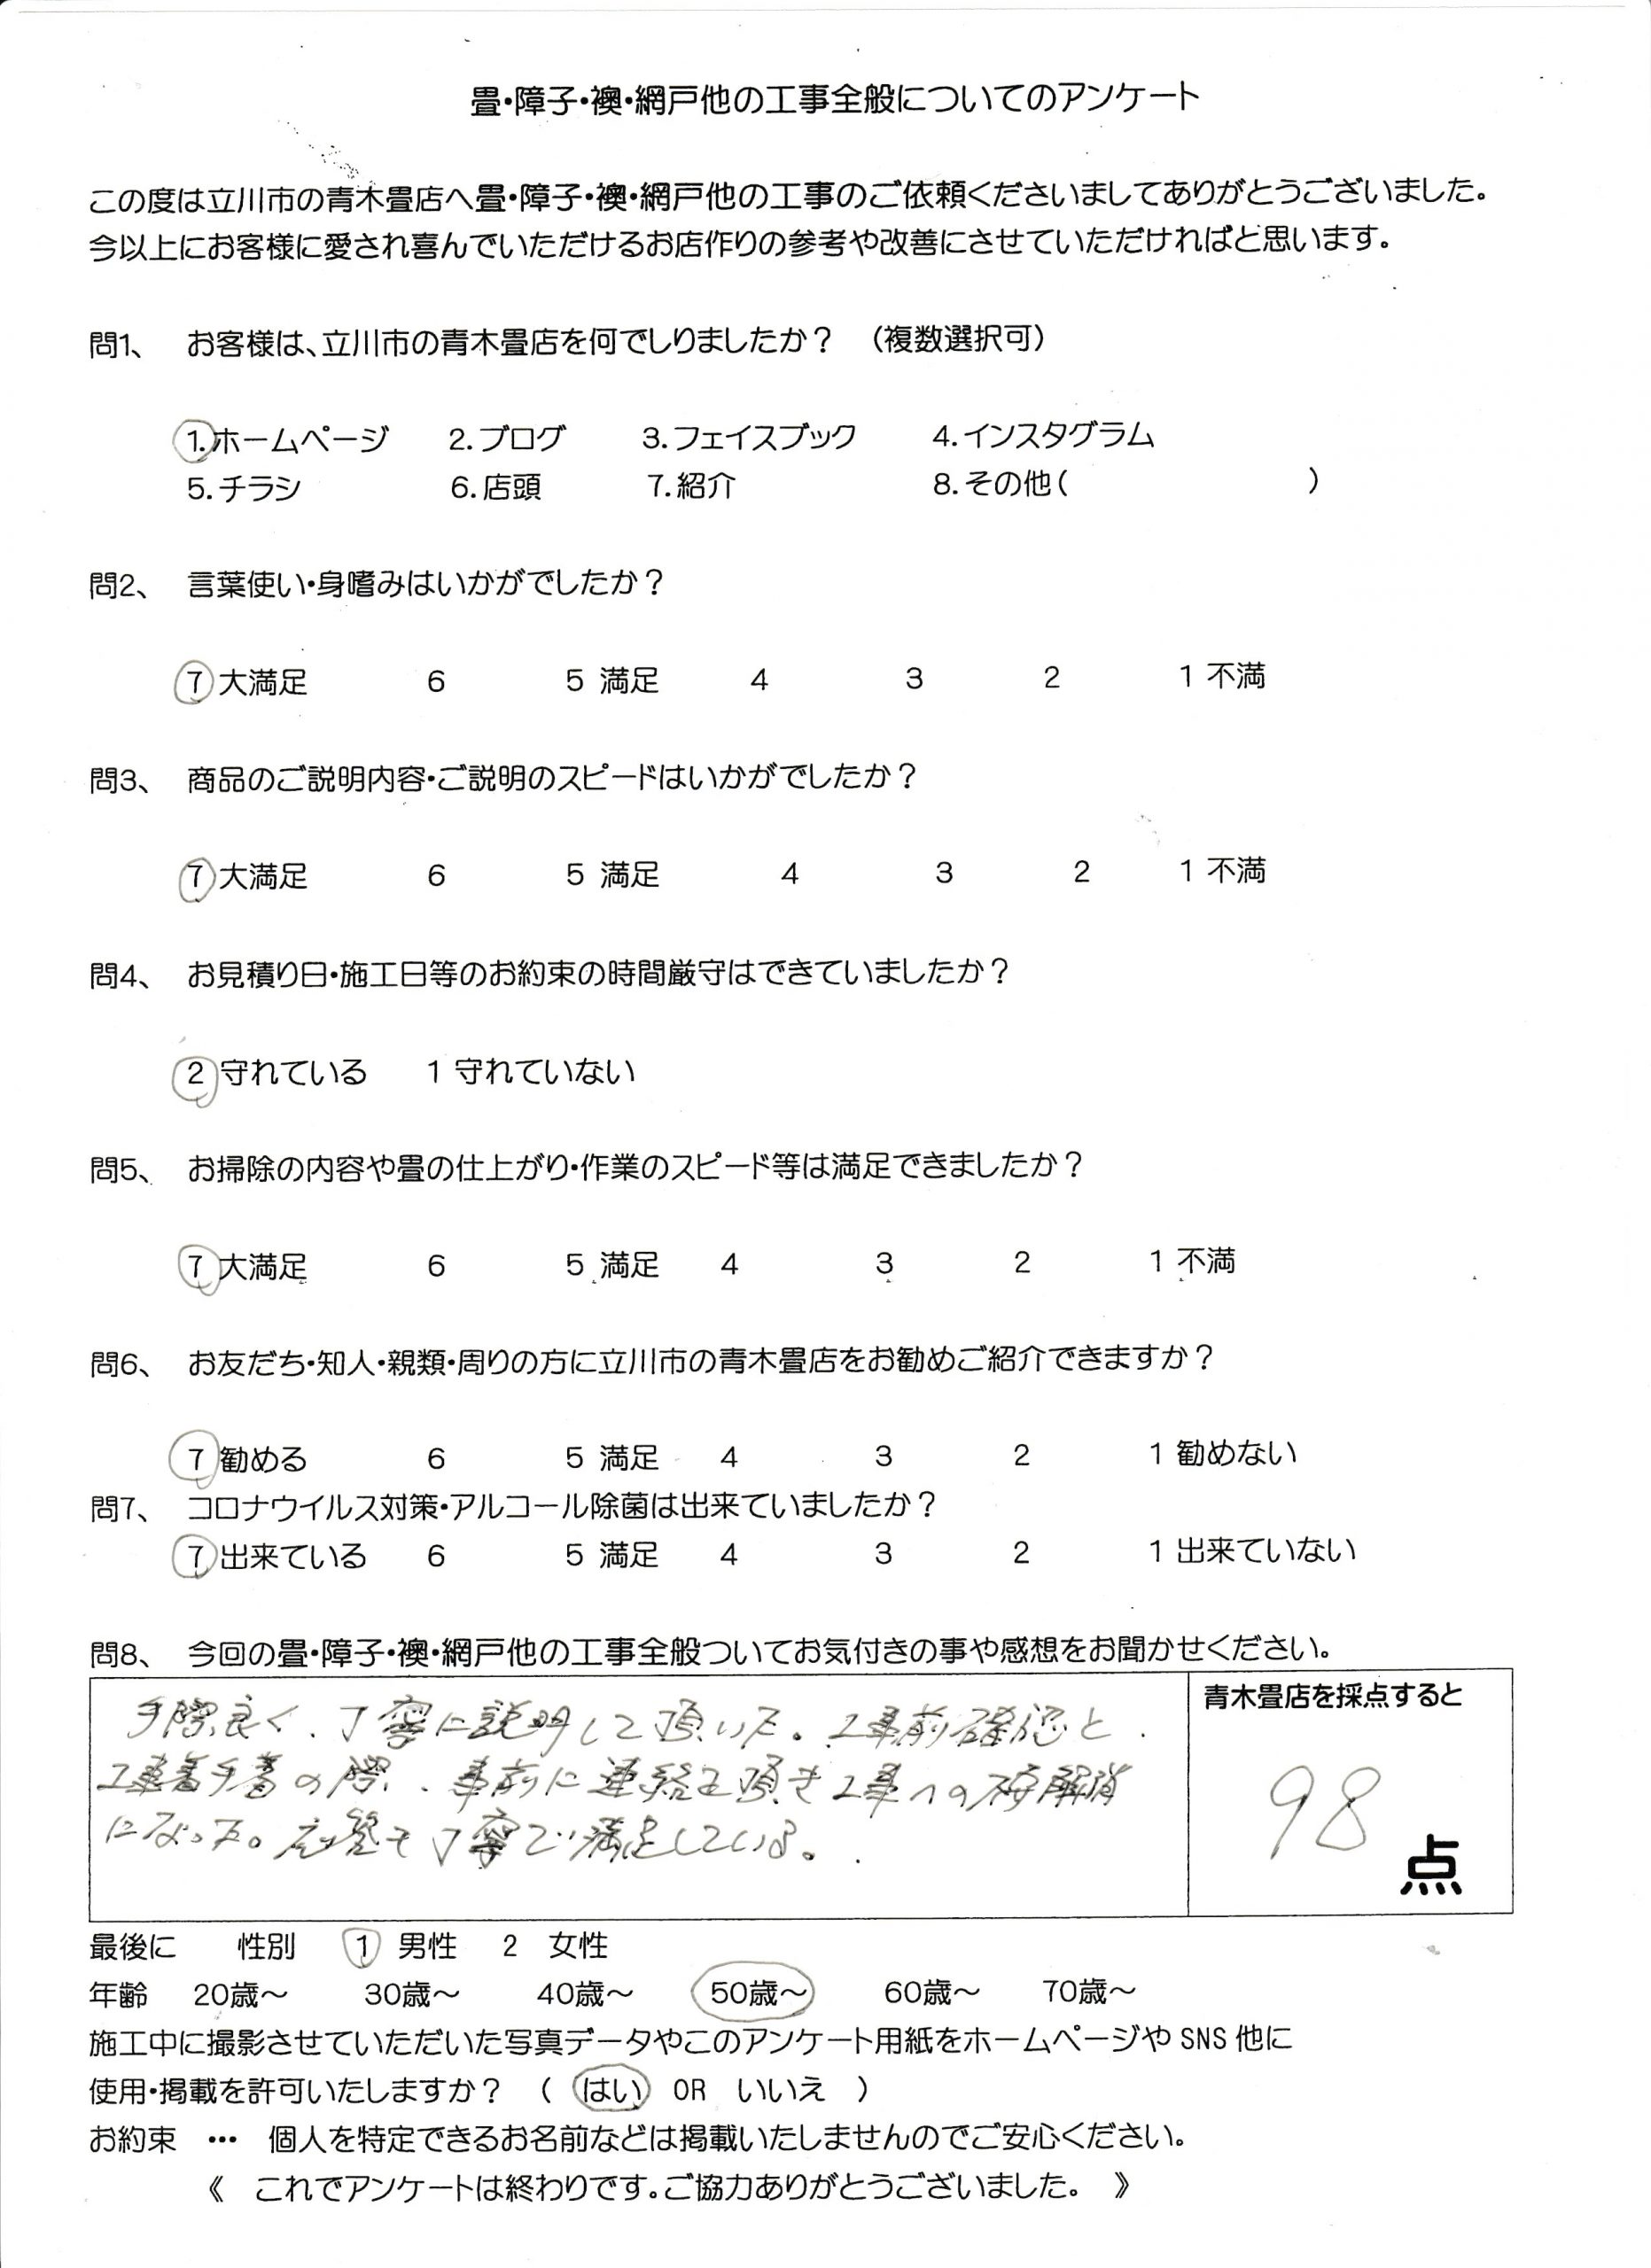 畳・障子・襖・網戸他の工事全般についてのアンケート
この度は立川市の青木畳店へ畳・障子・襖・網戸他の工事のご依頼くださいましてありがとうございました。
今以上にお客様に愛され喜んでいただけるお店作りの参考や改善にさせていただければと思います。
問1、 お客様は、立川市の青木畳店を何でしりましたか？ （複数選択可）
1.ホームページ 2.ブログ 3.フェイスブック 4.インスタグラム
5.チラシ 6.店頭 7.紹介 8.その他( )
問2、 言葉使い・身嗜みはいかがでしたか？
7 大満足 6 5 満足 4 3 2 1 不満
問3、 商品のご説明内容・ご説明のスピードはいかがでしたか？
7 大満足 6 5 満足 4 3 2 1 不満
問4、 お見積り日・施工日等のお約束の時間厳守はできていましたか？
2 守れている 1 守れていない
問5、 お掃除の内容や畳の仕上がり・作業のスピード等は満足できましたか？
7 大満足 6 5 満足 4 3 2 1 不満
問6、 お友だち・知人・親類・周りの方に立川市の青木畳店をお勧めご紹介できますか？
7 勧める 6 5 満足 4 3 2 1 勧めない
問7、 コロナウイルス対策・アルコール除菌は出来ていましたか？
7 出来ている 6 5 満足 4 3 2 1 出来ていない
問8、 今回の畳・障子・襖・網戸他の工事全般ついてお気付きの事や感想をお聞かせください。
手際良く、丁寧に説明して頂いた。工事前確認と
工事着手の際、事前に連絡を頂き工事への不安解消
になった。応答も丁寧で満足している。
青木畳店を採点すると
98
点
最後に 性別 1 男性 2 女性
年齢 20歳～ 30歳～ 40歳～ 50歳～ 60歳～ 70歳～
施工中に撮影させていただいた写真データやこのアンケート用紙をホームページや SNS 他に
使用・掲載を許可いたしますか？ （ はい OR いいえ ）
お約束 … 個人を特定できるお名前などは掲載いたしませんのでご安心ください。
《 これでアンケートは終わりです。ご協力ありがとうございました。 》